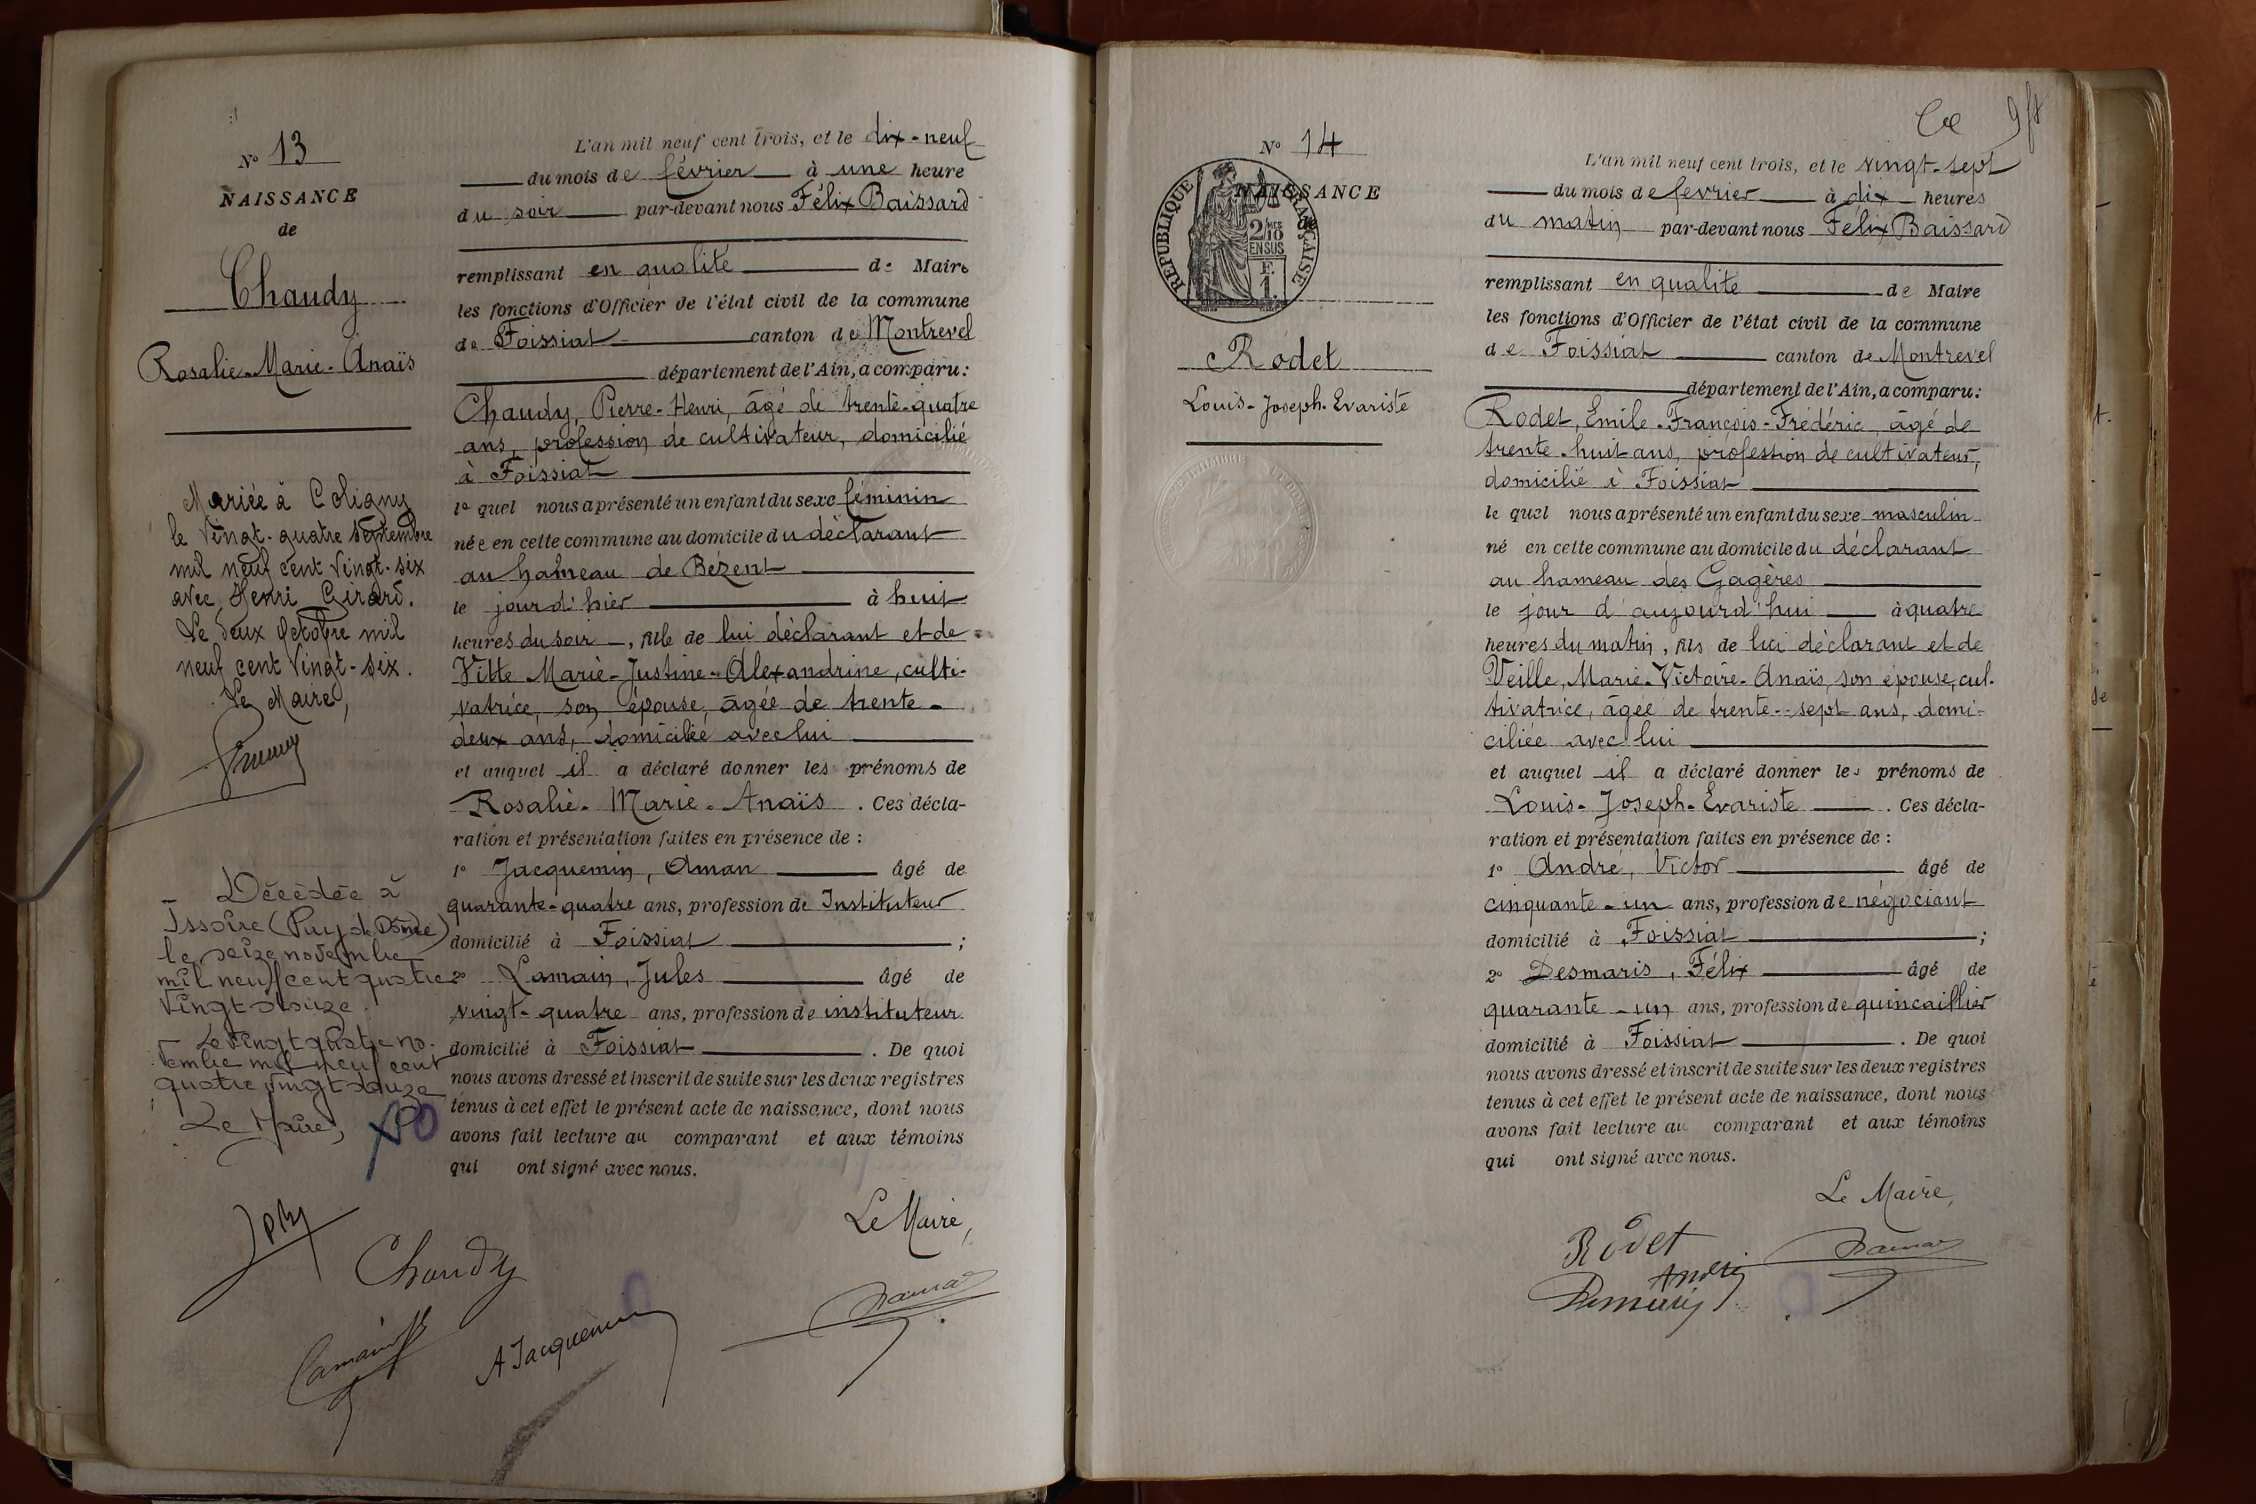 N° 13
NAISSANCE
de
Chaudy
Rosalie-Marie-Anaïs
Mariée à Coligny
le vingt-quatre septembre
mil neuf cent vingt-six
avec Henri Girard.
Le deux octobre mil
neuf cent vingt-six.
Le Maire,
Décédée à
Issoire (Puy de Dôme)
le seize novembre
mil neuf cent quatre
vingt douze.
Le vingt quatre no-
vembre mil neuf cent
quatre vingt douze
Le Maire,
L'an mil neuf cent trois, et le dix-neuf
du mois de février à une heure
du soir par-devant nous Félix Baissard
remplissant en qualité de Maire
les fonctions d'Officier de l'état civil de la commune
de Foissiat canton de Montrevel
département de l'Ain, a comparu:
Chaudy, Pierre-Henri, âgé de trente-quatre
ans, profession de cultivateur, domicilié
à Foissiat
lequel nous a présenté un enfant du sexe féminin
née en cette commune au domicile du déclarant
au hameau de Bézent
le jour d'hier à huit
heures du soir, fille de lui déclarant et de
Vitte Marie-Justine-Alexandrine, culti-
vatrice, son épouse, âgée de trente-
deux ans, domiciliée avec lui
et auquel il a déclaré donner les prénoms de
Rosalie-Marie-Anaïs. Ces décla-
ration et présentation faites en présence de :
1° Jacquemin, Aman âgé de
quarante-quatre ans, profession de Instituteur
domicilié à Foissiat ;
2° Lamain, Jules âgé de
vingt-quatre ans, profession de instituteur
domicilié à Foissiat. De quoi
nous avons dressé et inscrit de suite sur les deux registres
tenus à cet effet le présent acte de naissance, dont nous
avons fait lecture au comparant et aux témoins
qui ont signé avec nous.
Le Maire,
Chaudy
Lamain
A Jacquemin
N° 14
NAISSANCE
de
RÉPUBLIQUE FRANÇAISE
2/10
EN SUS
F.
1
Rodet
Louis-Joseph-Evariste
L'an mil neuf cent trois, et le vingt-sept
du mois de février à dix heures
du matin par-devant nous Félix Baissard
remplissant en qualité de Maire
les fonctions d'Officier de l'état civil de la commune
de Foissiat canton de Montrevel
département de l'Ain, a comparu:
Rodet, Emile-François-Frédéric, âgé de
trente-huit ans, profession de cultivateur,
domicilié à Foissiat
lequel nous a présenté un enfant du sexe masculin
né en cette commune au domicile du déclarant
au hameau des Gagères
le jour d'aujourd'hui à quatre
heures du matin, fils de lui déclarant et de
Veille, Marie-Victoire-Anaïs, son épouse, cul-
tivatrice, âgée de trente-sept ans, domi-
ciliée avec lui
et auquel il a déclaré donner les prénoms de
Louis-Joseph-Evariste. Ces décla-
ration et présentation faites en présence de :
1° André, Victor âgé de
cinquante-un ans, profession de négociant
domicilié à Foissiat ;
2° Desmaris, Félix âgé de
quarante-un ans, profession de quincaillier
domicilié à Foissiat. De quoi
nous avons dressé et inscrit de suite sur les deux registres
tenus à cet effet le présent acte de naissance, dont nous
avons fait lecture au comparant et aux témoins
qui ont signé avec nous.
Le Maire,
Rodet
André